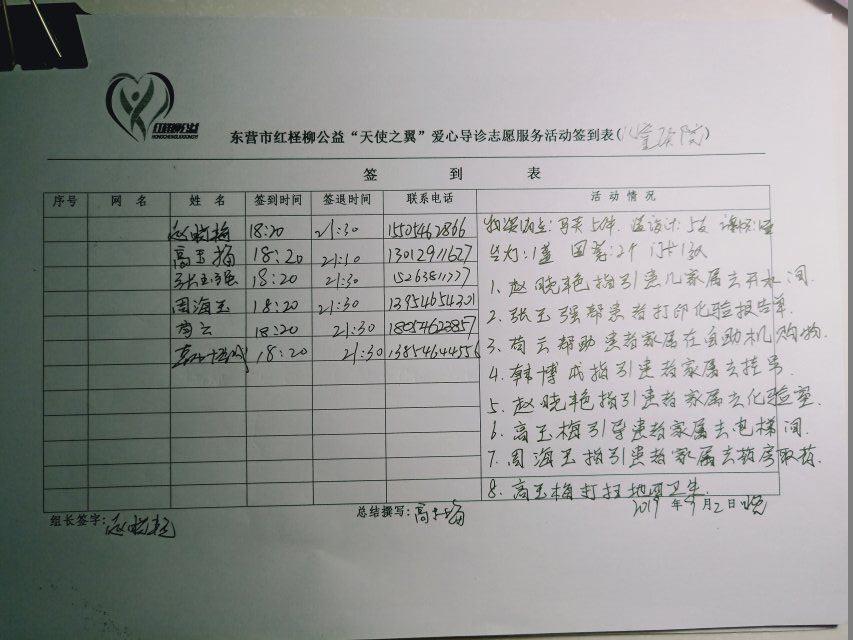 红柽柳公益
HONGCHENGLIUGONGYI
东营市红柽柳公益“天使之翼”爱心导诊志愿服务活动签到表(儿童医院)
签 到 表
序号 网 名 姓 名 签到时间 签退时间 联系电话 活 动 情 况
赵晓艳 18:20 21:30
高玉梅 18:20 21:30 13012911627
张玉强 18:20 21:30 15263811227
周海玉 18:20 21:30 13954654301
荷云 18:20 21:30 18054622857
韩博成 18:20 21:30 13854644556
1、赵晓艳指引患儿家属去开水间
2、张玉强帮患者打印化验报告单
3、荷云帮助患者家属在自助机购物
4、韩博成指引患者家属去挂号
5、赵晓艳指引患者家属去化验室.
6、高玉梅引导患者家属去电梯间.
7、周海玉指引患者家属去药房取药.
8、高玉梅打扫地面卫生.
组长签字:赵晓艳 总结撰写:高玉梅 2019年9月2日晚